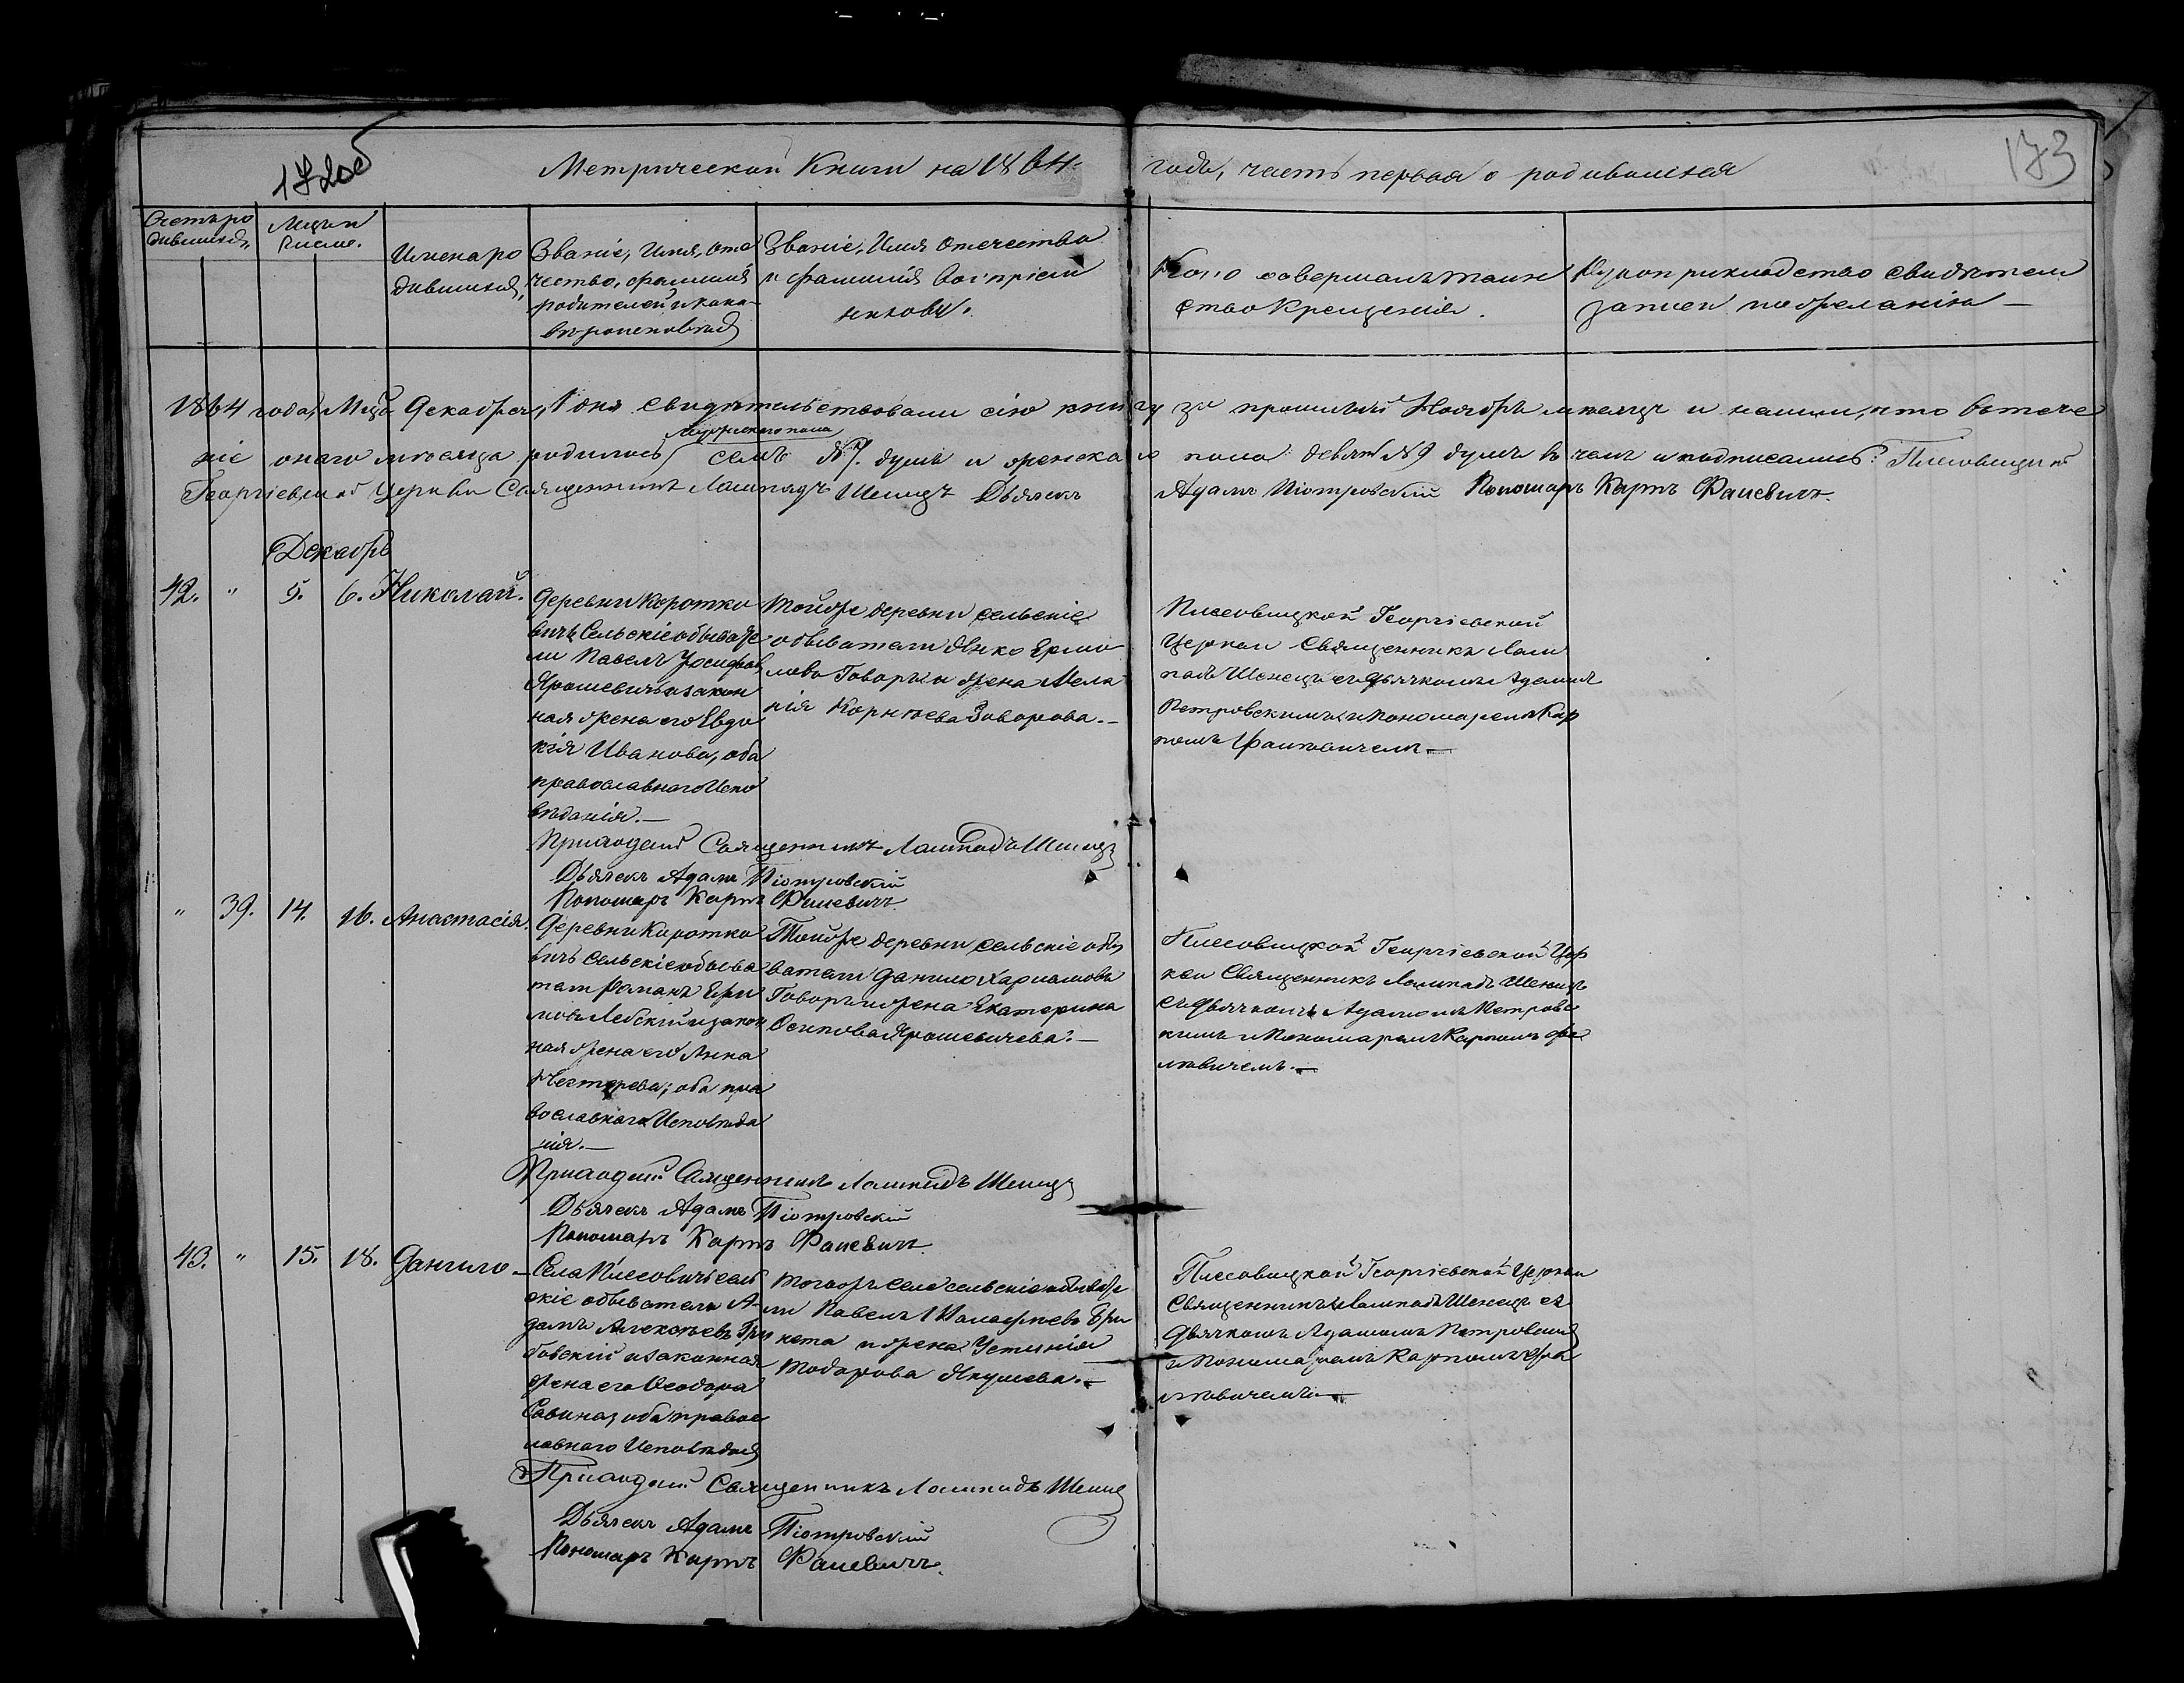 172об
Метрической Книги на 1864. года, часть первая о родившихся
173
Счетъ родившихся.
Мцъ и Число.
Имена родившихся.
Званіе, Имя, отечество, фамилия
родителей и какова
вѣроисповѣд
Званіе, Имя Отечество
и фамилия воспріем
никовъ.
Кто совершалъ таин
ство Крещенія.
Рукоприкладство свидѣтелей
записи по желанію
1864 года, Мца Декабря, 1 дня свидѣтельствовали сію книгу за прошлый Ноябрь мѣсяцъ и нашли, что въ тече
ніе онаго мѣсяца родились мужеского пола семь №7. душъ и женска го пола девять №9 душъ в чемъ и подписались:
Георгіевской Церкви Священникъ Лампадъ Шемецъ Дьячекъ Адамъ Піотровскій Пономаръ Карпъ
Декабрь
42. " 5. 6. Николай.
Деревни Коротко
вичь Сельскіе обывате
ли Павелъ Іосифовъ
Ярошевичь и закон
ная жена его Евдо
кія Иванова, оба
православнаго Испо
вѣданія.
Тойже деревни сельскіе
обыватели Янко Ермо
лова Говоръ и жена Мела
нія Корнѣева Говорова.
Георгіевской
Церкви Священникъ Лам
падъ Шемецъ съ Дьячкомъ Адамомъ
Петровскимъ и Пономаремъ Кар
помъ
Приходскій Священникъ Лампадъ Шемецъ
Дьячекъ Адамъ Піотровскій
Пономаръ Карпъ
" 39. 14. 16. Анастасія.
Деревни Коротко
вичь сельскіе обыва
тели Романъ
и закон
ная жена его Анна
Нестерева; оба пра
вославнаго Исповѣда
нія.
Тойже деревни сельскіе обы
ватели Данило Харламовъ
Говоръ и жена Екатерина
Осипова Ярошевичева.
Георгіевской Цер
кви Священникъ Лампадъ Шемецъ
съ Дьячкомъ Адамомъ Петровс
кимъ и Пономаремъ Карпомъ
Приходскій Священникъ Лампадъ Шемецъ
Дьячекъ Адамъ Піотровскій
Пономаръ Карпъ
43. " 15. 18. Данило.
Села сель
скіе обыватели А
дамъ Алексѣевъ Гри
бовскій и законная
жена его Феодора
Савина, оба правос
лавнаго Исповѣдан
Тогоже села сельскіе обывате
ли Павелъ
и жена Устинія
Тодорова Якушева.
Георгіевской Церкви
Священникъ Лампадъ Шемецъ съ
Дьячкомъ Адамомъ Петровским
и Пономаремъ Карпомъ
Приходскій Священникъ Лампадъ Шемец
Дьячекъ Адамъ Піотровскій
Пономаръ Карпъ